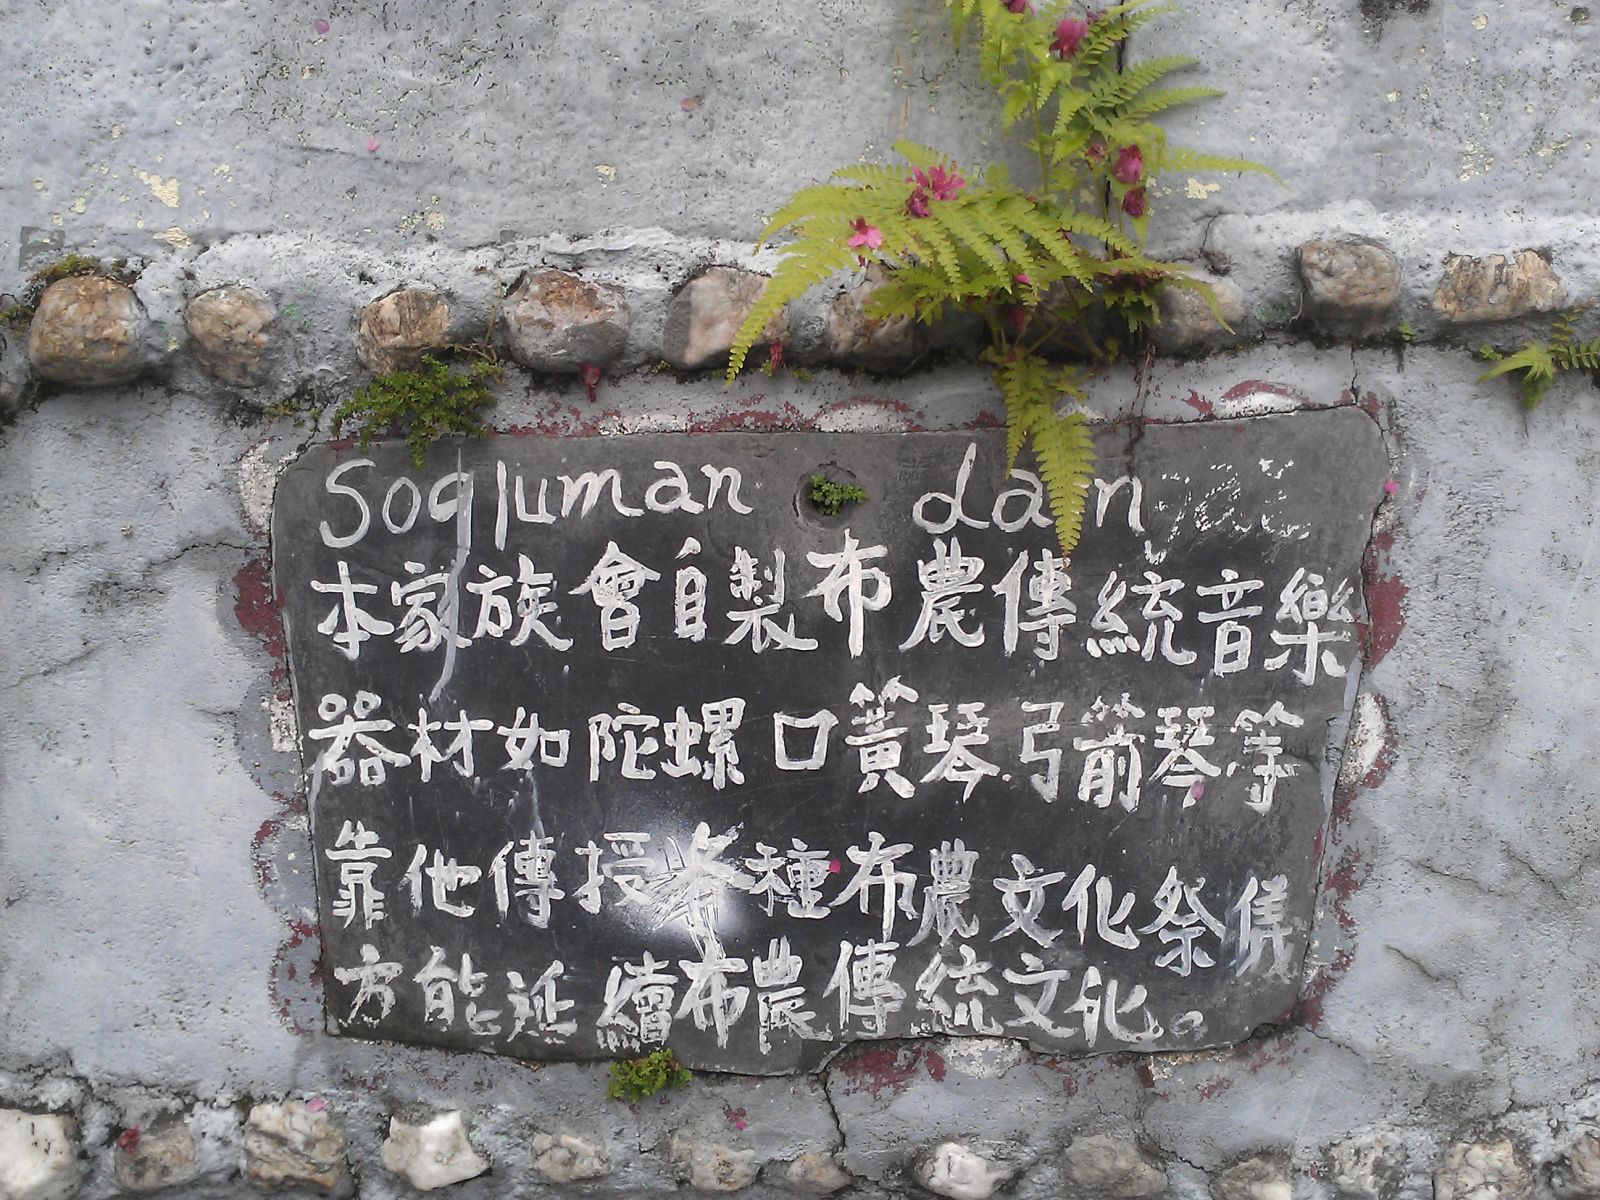 Soqluman dain
本家族會自製布農傳統音樂
器材如陀螺口簧琴弓箭琴等
靠他傳授各種布農文化祭儀
方能延續布農傳統文化。